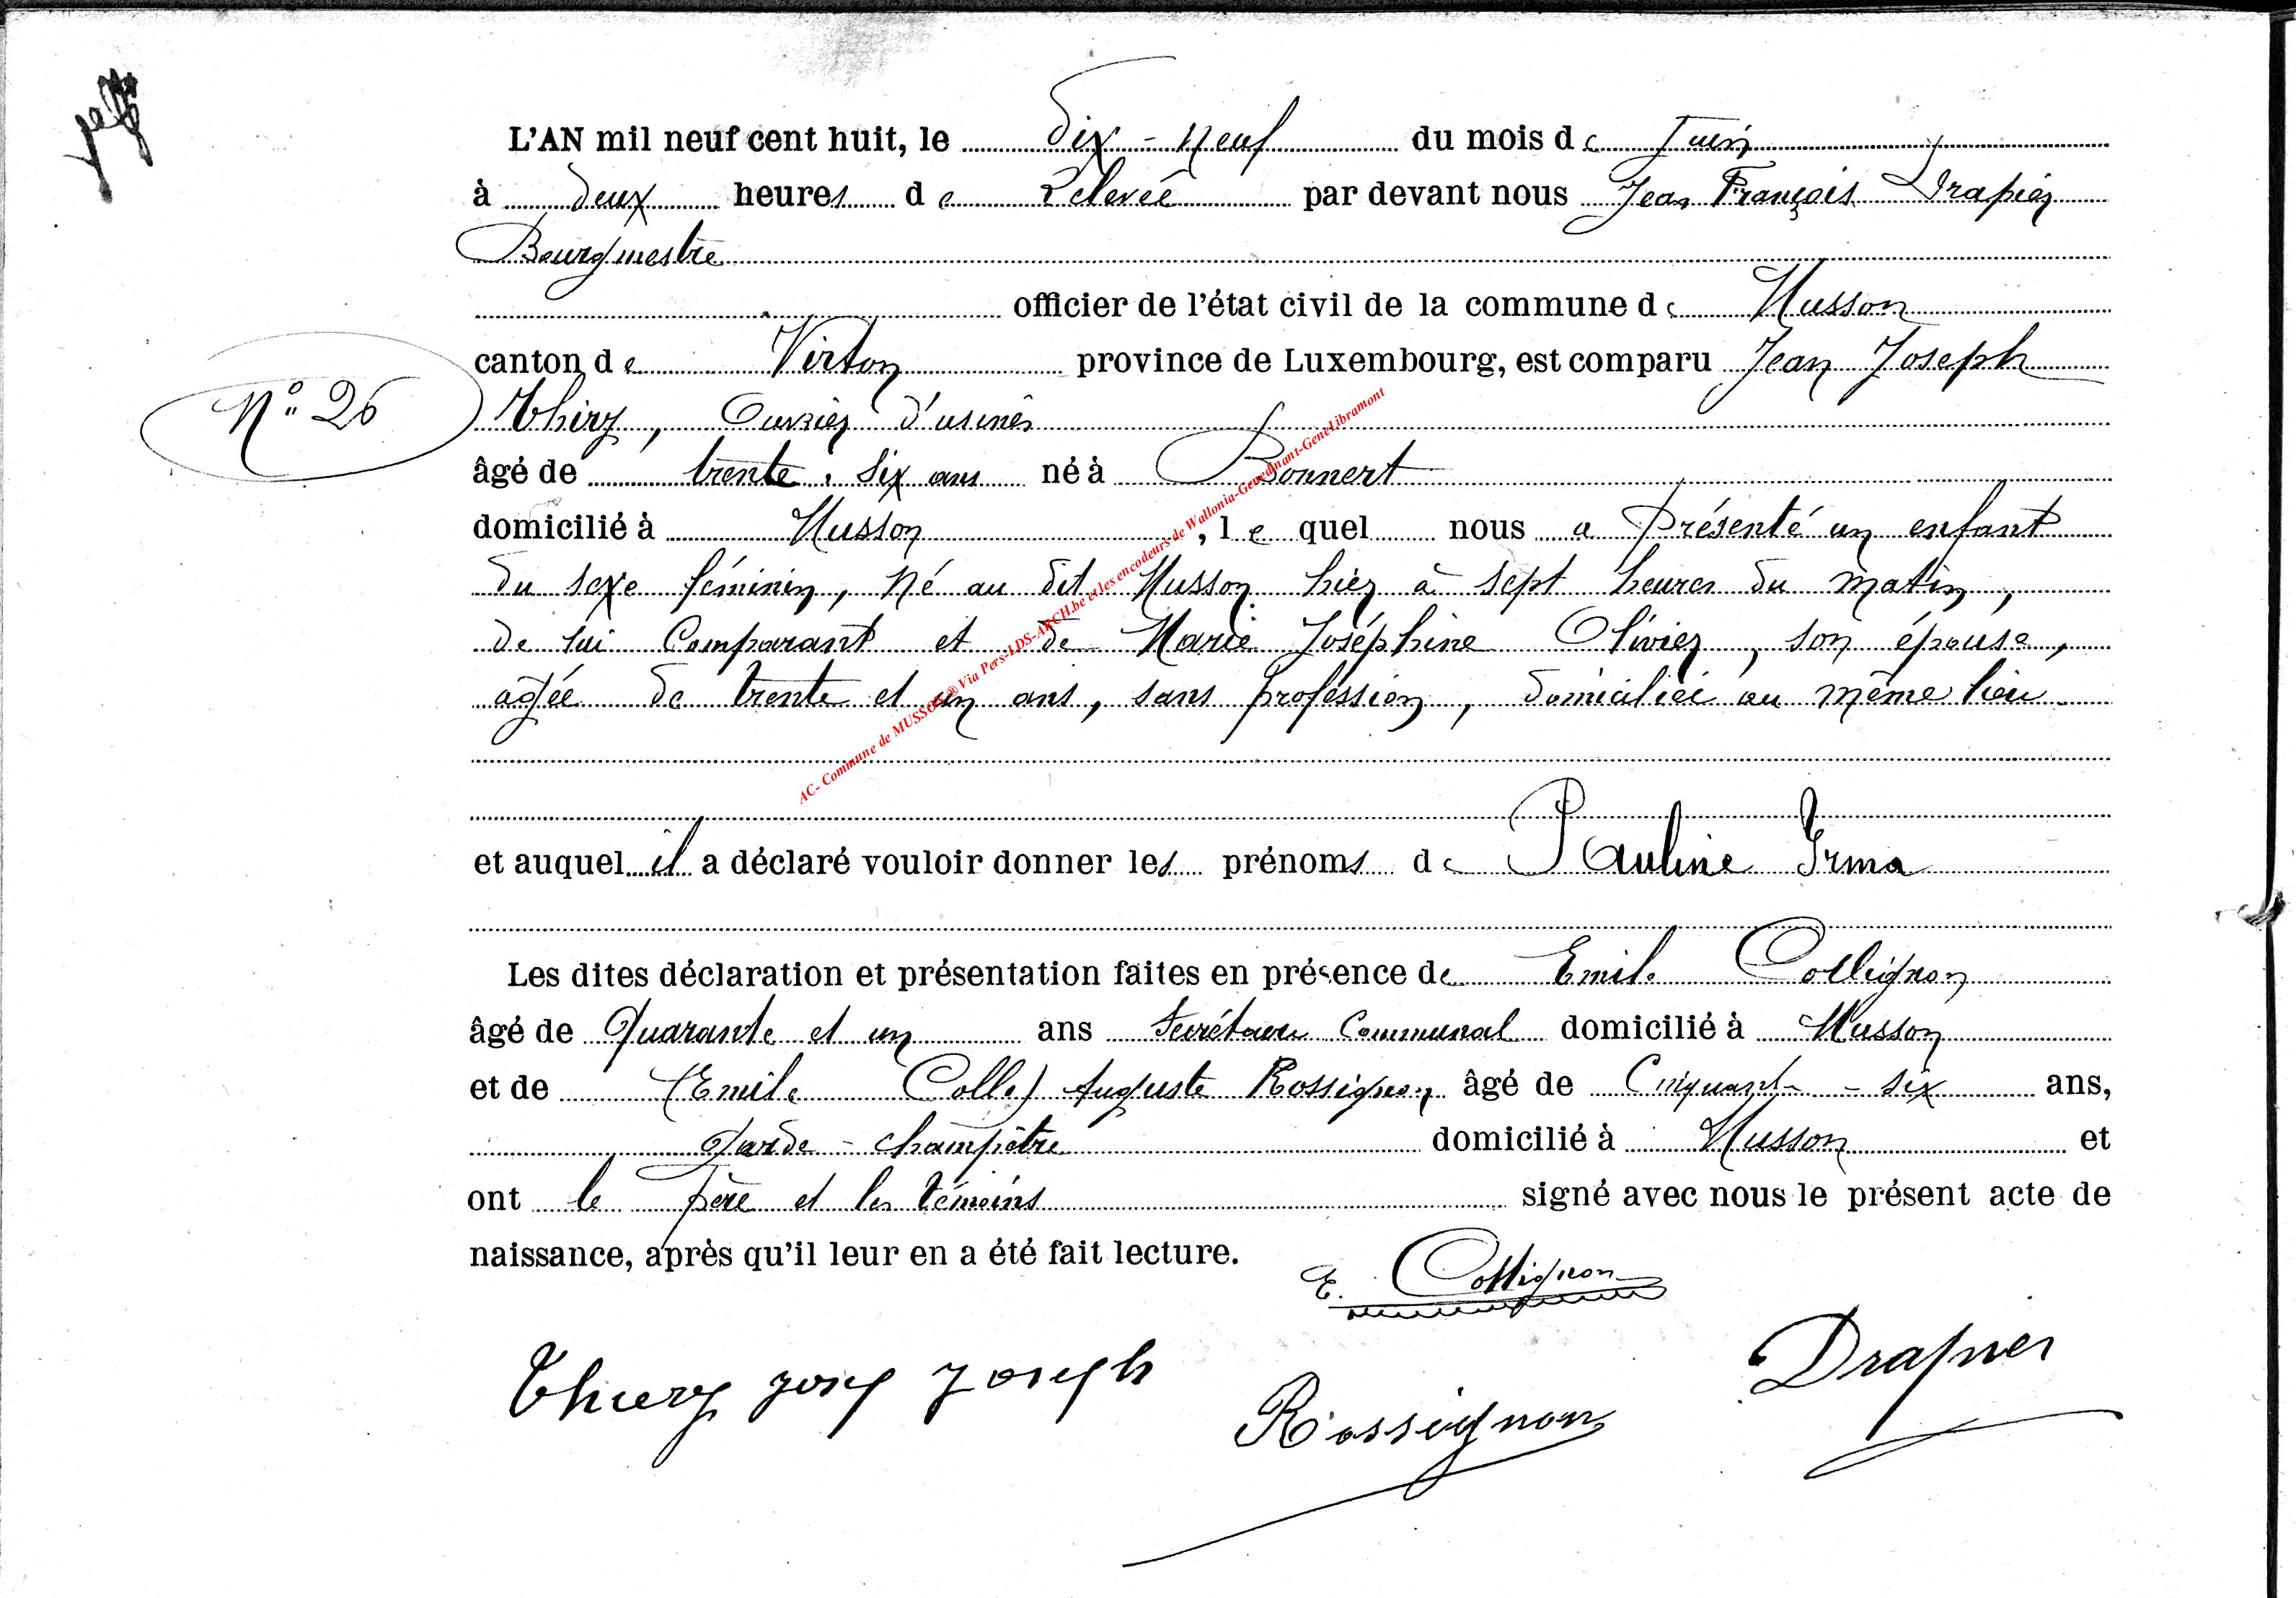 L'AN mil neuf cent huit, le dix-neuf du mois de Juin
à deux heures de relevée par devant nous Jean François Drapier
Bourgmestre
officier de l'état civil de la commune de Musson
canton de Virton province de Luxembourg, est comparu Jean Joseph
N° 26
Thiry, Ouvrier d'usines
âgé de trente six ans né à Bonnert
domicilié à Musson, lequel nous a présenté un enfant
du sexe féminin, né au dit Musson hier à sept heures du matin,
de lui Comparant et de Marie Joséphine Olivier, son épouse,
agée de trente et un ans, sans profession, domiciliée au même lieu
AC- Commune de MUSSON ® Via Pers-LDS-ARCH.be et les encodeurs de Wallonia-Genedinant-GeneLibramont
et auquel il a déclaré vouloir donner les prénoms de Pauline Irma
Les dites déclaration et présentation faites en présence de Emile Collignon
âgé de Quarante et un ans Secrétaire Communal domicilié à Musson
et de (Emile Colle) Auguste Rossignon âgé de Cinquante-six ans,
Garde-champêtre domicilié à Musson et
ont le père et les témoins signé avec nous le présent acte de
naissance, après qu'il leur en a été fait lecture.
E. Collignon
Drapier
Joseph
Rossignon